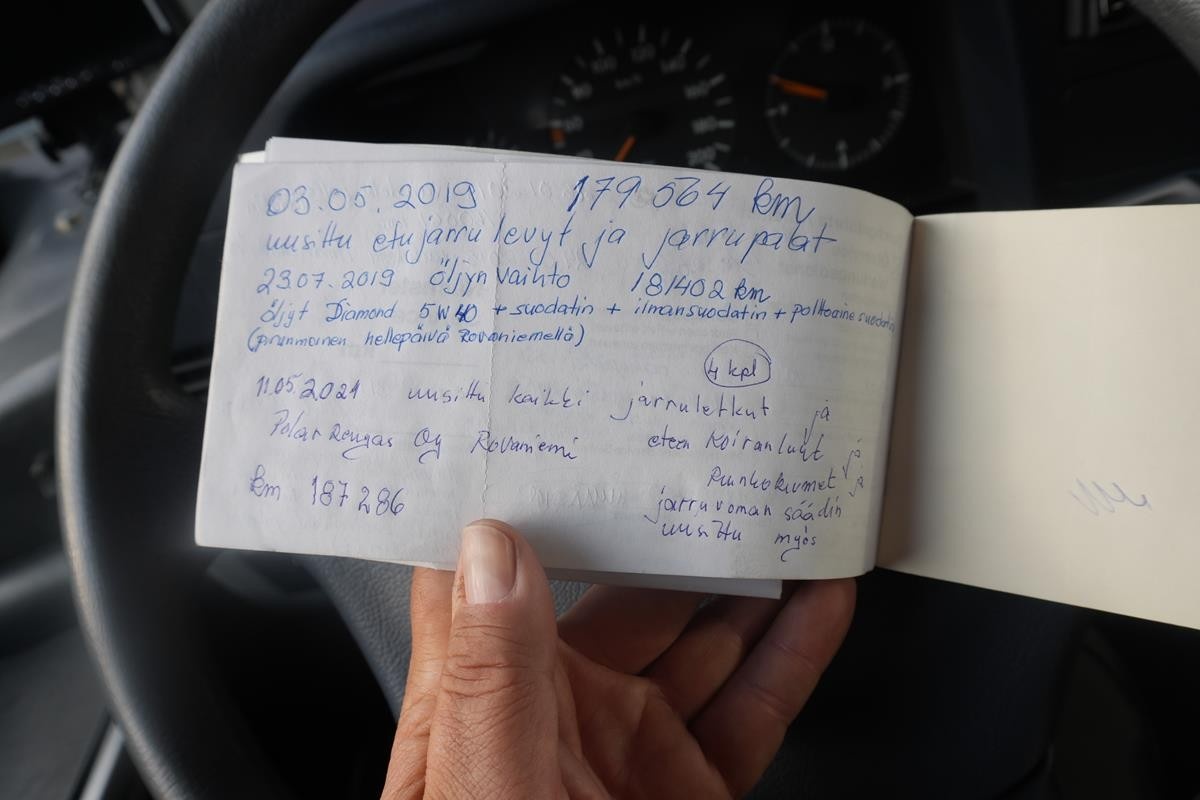 03.05.2019 179 564 km
uusittu etujarrulevyt ja jarrupalat
23.07.2019 öljynvaihto 181402 km
öljyt Diamond 5W40 + suodatin + ilmansuodatin + polttoaine suodatin
(prunmoinen hellepäivä Rovaniemellä)
4 kpl
11.05.2021 uusittu kaikki jarruletkut ja
Polar Rengas Oy Rovaniemi eteen koiranluut ja
Runkokumet ja
km 187 286 jarruvoman säädin
uusittu myös